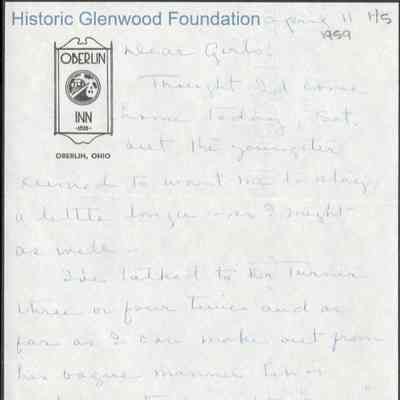 Historic Glenwood Foundation
April 11 1/5
1959
Dear Girls:
OBERLIN
INN
OBERLIN, OHIO
Thought I'd come
home today, Sat.
but the youngster
seemed to want me to stay
a little longer so I might
as well
I've talked to Mr Turner
three or four times and as
far as I can make out from
his vague manner